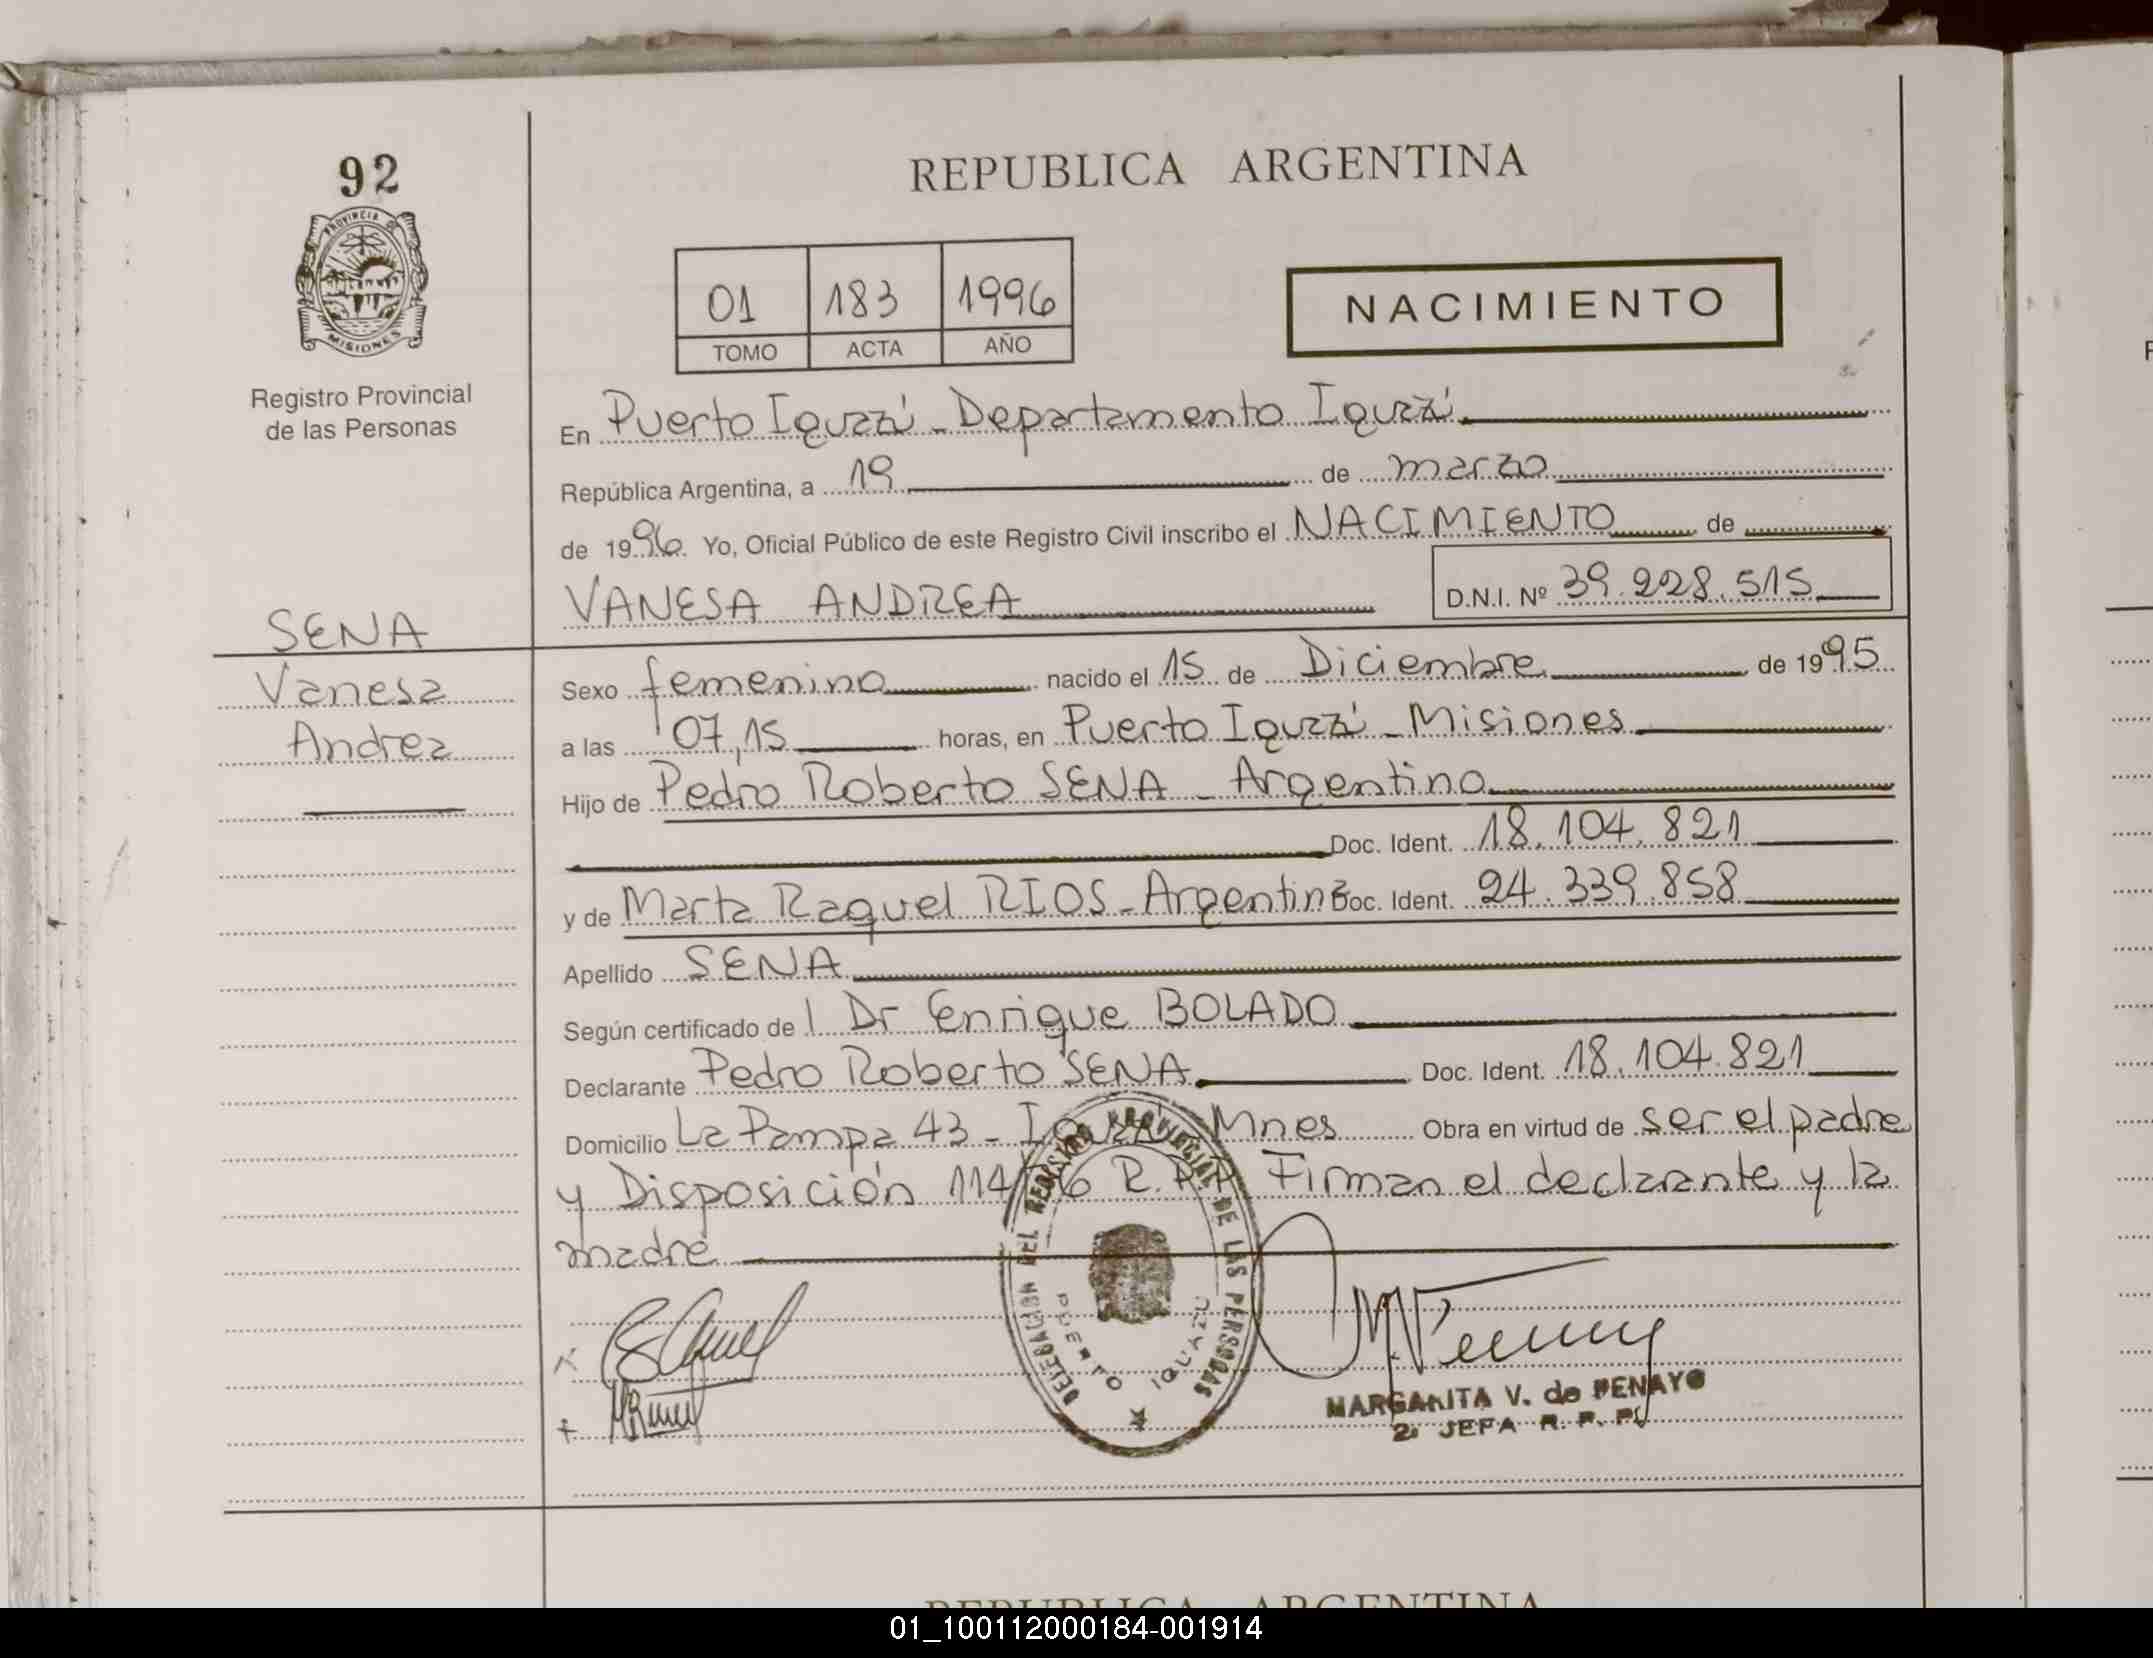 92
REPUBLICA ARGENTINA
PROVINCIA DE
MISIONES
Registro Provincial
de las Personas
01 183 1996
TOMO ACTA AÑO
NACIMIENTO
En Puerto Iguazú - Departamento Iguazú
República Argentina, a 19 de marzo
de 1996 Yo, Oficial Público de este Registro Civil inscribo el NACIMIENTO de
VANESA ANDREA D.N.I. Nº 39.228.515
SENA
Vanesa
Andrea
Sexo femenino nacido el 15 de Diciembre de 1995
a las 07,15 horas, en Puerto Iguazú - Misiones
Hijo de Pedro Roberto SENA - Argentino
Doc. Ident. 18.104.821
y de Marta Raquel RIOS - Argentina Doc. Ident. 24.339.858
Apellido SENA
Según certificado de l Dr Enrique BOLADO
Declarante Pedro Roberto SENA Doc. Ident. 18.104.821
Domicilio La Pampa 43 - Iguazú Mnes Obra en virtud de ser el padre
y Disposición 114/96 R.P.P. Firman el declarante y la
madre
DELEGACION DEL REGISTRO PROVINCIAL DE LAS PERSONAS
PUERTO IGUAZU
MARGARITA V. de PENAYO
2ª JEFA R. P. P.
REPUBLICA ARGENTINA
01_100112000184-001914